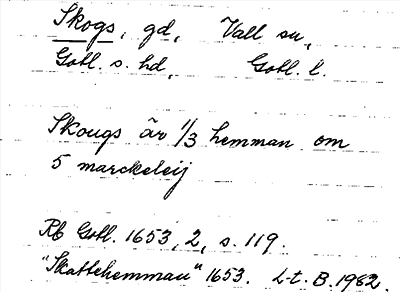 Skogs, gd, Vall sn,
Gotl. s. hd, Gotl. l.
Skougs är 1/3 hemman om
5 marckeleij
Rb Gotl. 1653, 2, s. 119.
"Skattehemman" 1653. L-t. B. 1982.